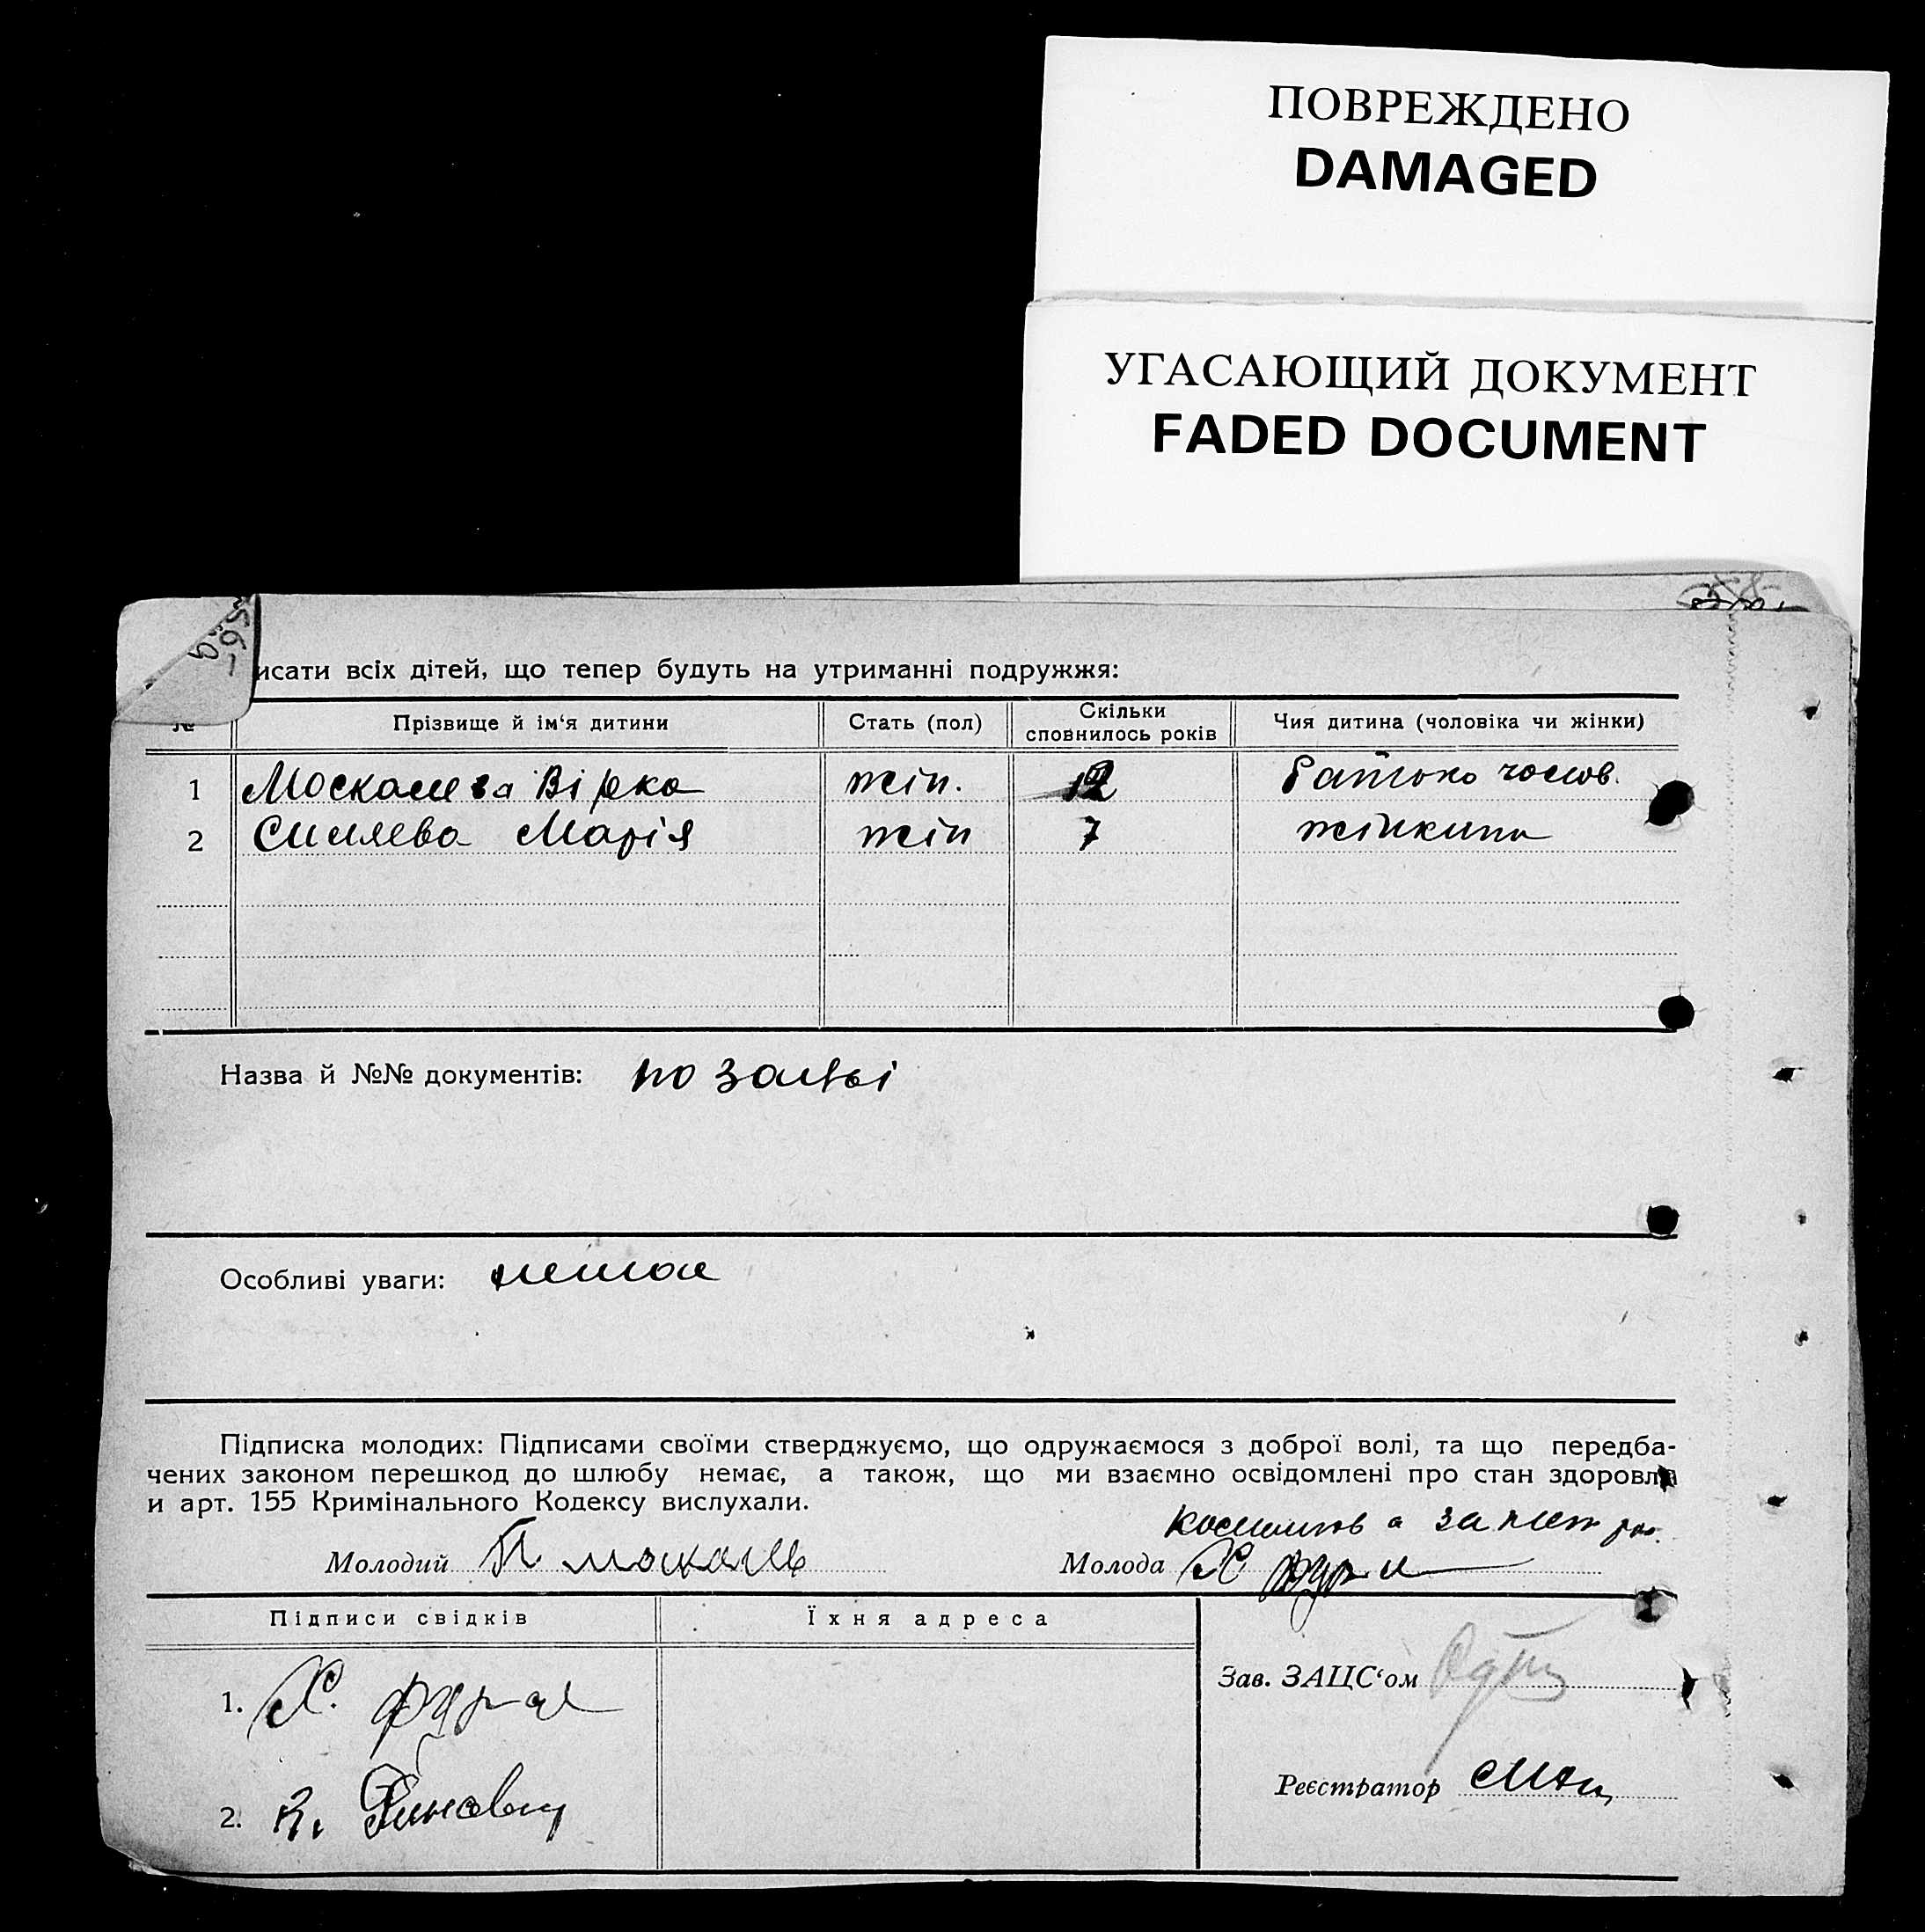 ПОВРЕЖДЕНО
DAMAGED
УГАСАЮЩИЙ ДОКУМЕНТ
FADED DOCUMENT
исати всіх дітей, що тепер будуть на утриманні подружжя:
№ Прізвище й ім‘я дитини Стать (пол) Скільки сповнилось років Чия дитина (чоловіка чи жінки)
1 Москалева Вірка жін. 12
2 Симяева Марія жін 7 жінкина
Назва й №№ документів: по заяві
Особливі уваги: немає
Підписка молодих: Підписами своїми стверджуємо, що одружаємося з доброї волі, та що передба-
чених законом перешкод до шлюбу немає, а також, що ми взаємно освідомлені про стан здоровля
и арт. 155 Кримінального Кодексу вислухали.
Молодий П москаль Молода
Підписи свідків Їхня адреса
Зав. ЗАЦС‘ом
1.
Реєстратор
2.